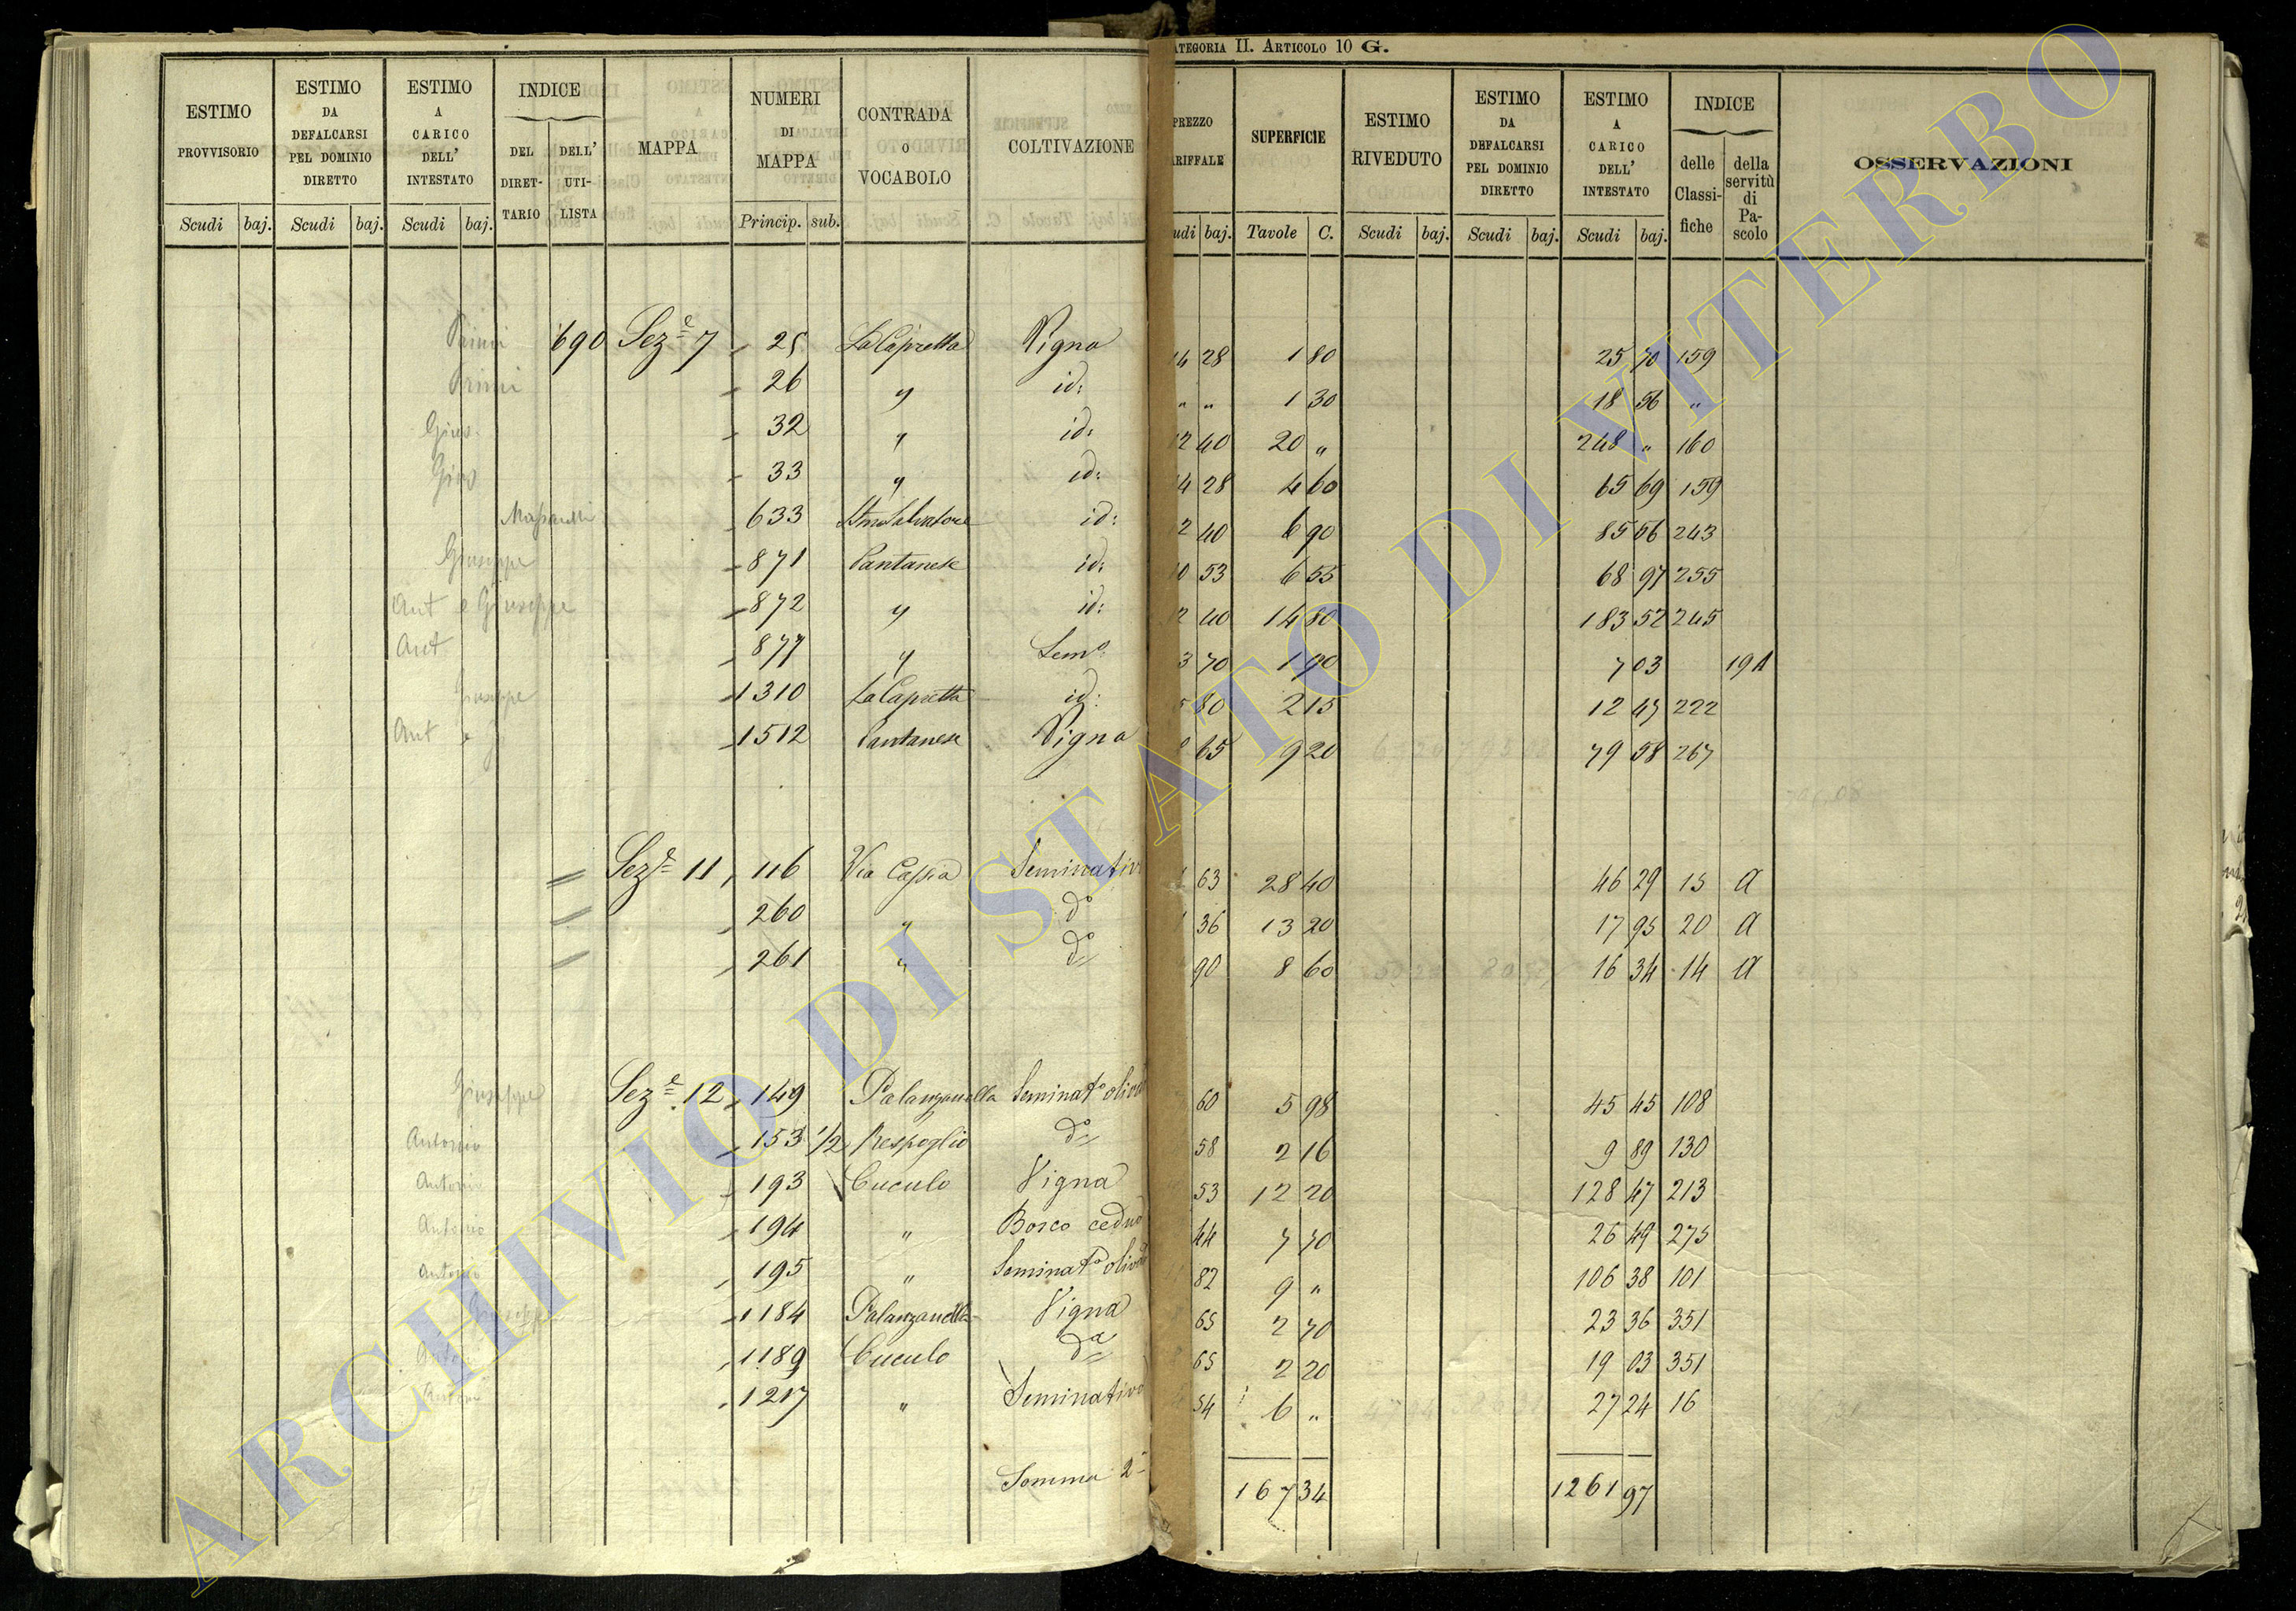 ATEGORIA II. ARTICOLO 10 G.
ESTIMO PROVVISORIO
Scudi baj.
ESTIMO DA DEFALCARSI PEL DOMINIO DIRETTO
Scudi baj.
ESTIMO A CARICO DELL' INTESTATO
Scudi baj.
INDICE
DEL DIRET-TARIO
DELL' UTI-LISTA
MAPPA
NUMERI DI MAPPA
Princip. sub.
CONTRADA O VOCABOLO
COLTIVAZIONE
PREZZO
ARIFFALE
udi baj.
SUPERFICIE
Tavole C.
ESTIMO RIVEDUTO
Scudi baj.
ESTIMO DA DEFALCARSI PEL DOMINIO DIRETTO
Scudi baj.
ESTIMO A CARICO DELL' INTESTATO
Scudi baj.
INDICE
delle Classi-fiche
della servitù di Pa-scolo
OSSERVAZIONI
690 Sez.e 7 25 La Capretta Vigna 14 28 1 80 25 70 159
26 " id: " " 1 30 18 56 "
Gius. 32 " id: 12 40 20 " 248 " 160
33 " id: 14 28 4 60 65 69 159
633 id: 12 40 6 90 85 56 243
Giuseppe 871 Pantanese id: 10 53 6 55 68 97 255
Ant e Giuseppe 872 " id: 12 40 14 80 183 52 245
Ant 877 " Sem.o 3 70 1 90 7 03 19 A
Giuseppe 1310 La Capretta id: 5 80 2 15 12 47 222
Ant e G 1512 Pantanese Vigna 65 9 20 79 58 267
Sez.e 11 116 Via Cassia Seminativ 63 28 40 46 29 15 A
260 " do 36 13 20 17 95 20 A
261 " do 90 8 60 16 34 14 A
Giuseppe Sez.e 12 149 Palanzanella Seminat.o oliv 60 5 98 45 45 108
Antonio 153 1/2 Respoglio do 58 2 16 9 89 130
Antonio 193 Cuculo Vigna 53 12 20 128 47 213
Antonio 194 " Bosco ceduo 44 7 70 26 49 275
Antonio 195 " Seminat.o oliv 82 9 " 106 38 101
Giuseppe 1184 Palanzanella Vigna 65 2 70 23 36 351
Anto 1189 Cuculo da 65 2 20 19 03 351
Antoni 1217 " Seminativo 54 6 " 27 24 16
Somma 2 167 34 1261 97
ARCHIVIO DI STATO DI VITERBO